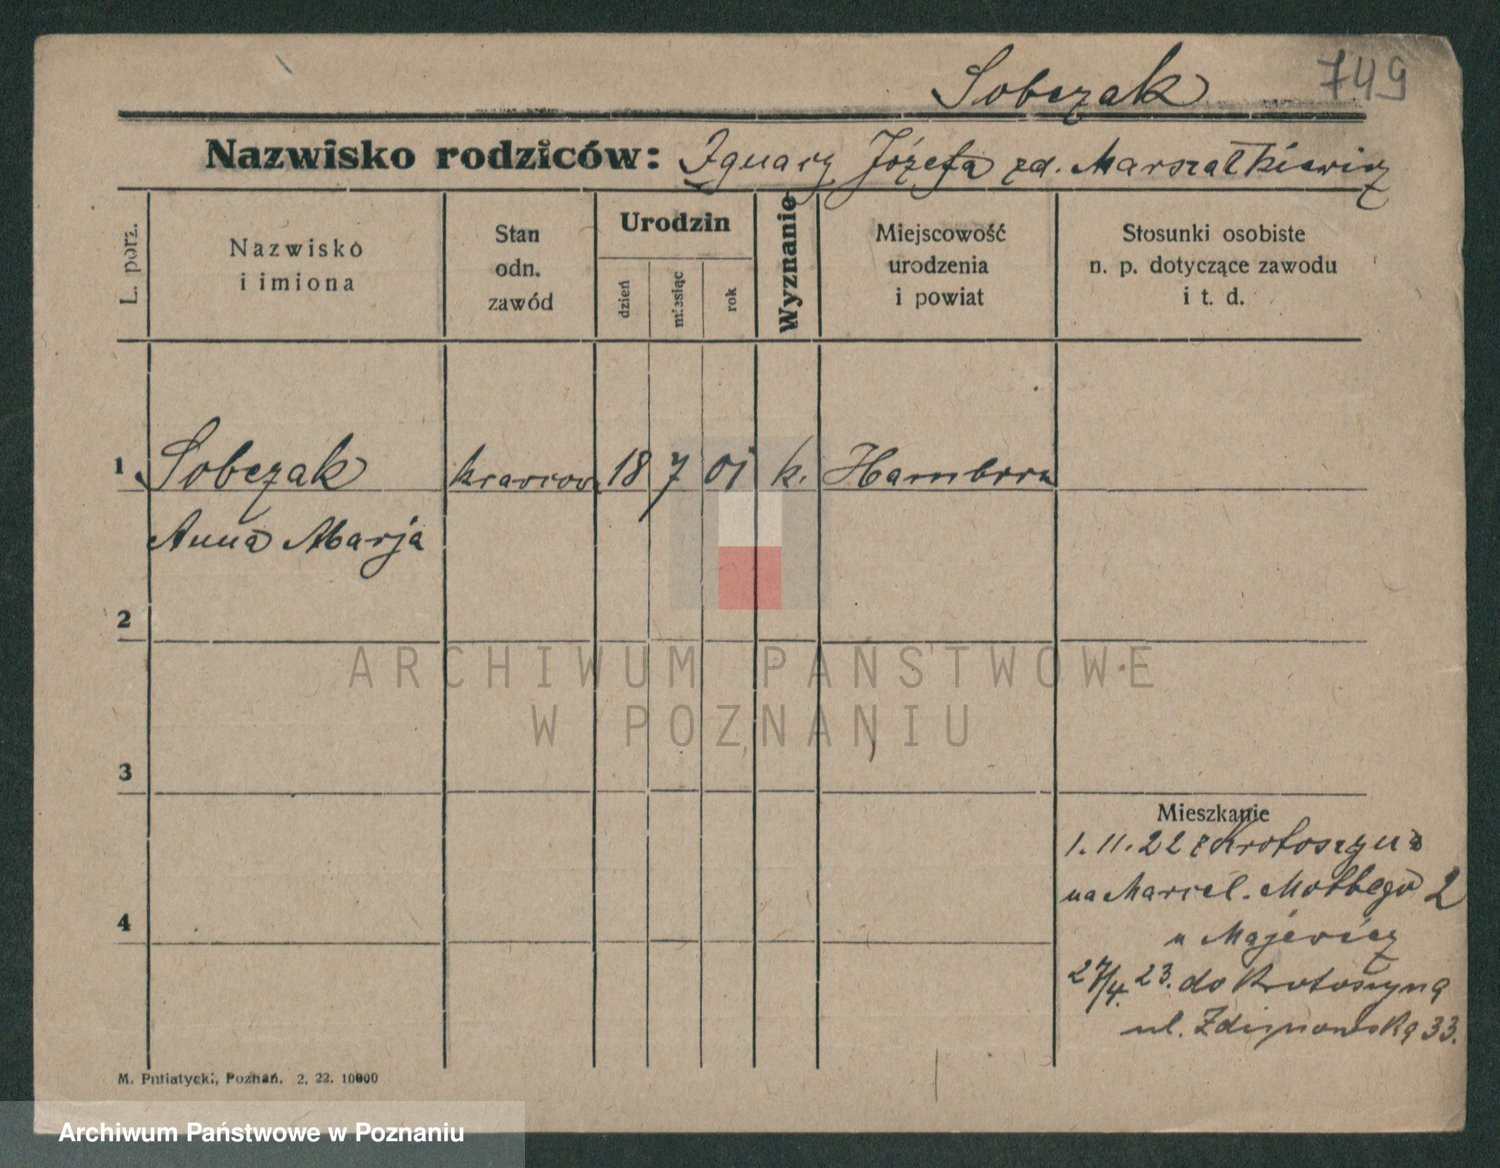 Sobczak 749
Nazwisko rodziców: Ignacy Józefa zd. Marszałkiewicz
L. porz.
Nazwisko
i imiona
Stan
odn.
zawód
Urodzin
dzień
miesiąc
rok
Wyznanie
Miejscowość
urodzenia
i powiat
Stosunki osobiste
n. p. dotyczące zawodu
i t. d.
1 Sobczak 18 7 01 k. Hamborn
Anna Marja
2
ARCHIWUM PAŃSTWOWE
W POZNANIU
3
Mieszkanie
1. 11. 22 z Krotoszyna
na Marcel. Mottego 2
u Majewicz
4
27/4. 23. do Krotoszyna
ul. Zdunowska 33.
M. Putiatycki, Poznań. 2. 22. 10000
Archiwum Państwowe w Poznaniu